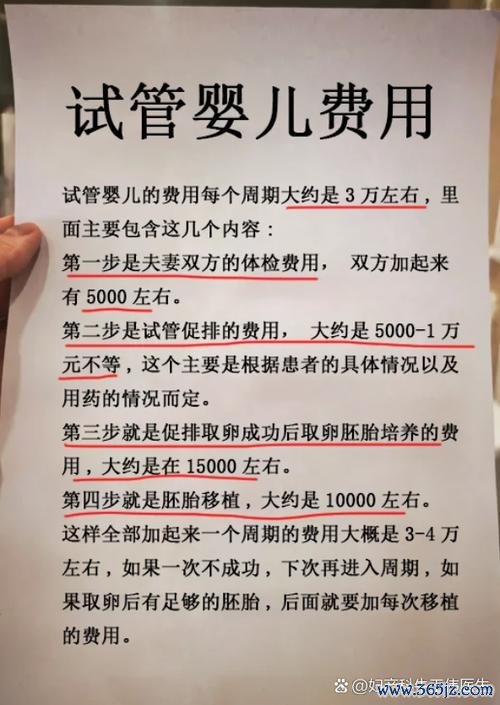 试管婴儿费用
试管婴儿的费用每个周期大约是3万左右,里
面主要包含这几个内容:
第一步是夫妻双方的体检费用, 双方加起来
有5000左右。
第二步是试管促排的费用, 大约是5000-1万
元不等,这个主要是根据患者的具体情况以及
用药的情况而定。
第三步就是促排取卵成功后取卵胚胎培养的费
用,大约是在15000左右。
第四步就是胚胎移植,大约是10000左右。
这样全部加起来一个周期的费用大概是3-4万
左右,如果一次不成功,下次再进入周期,如
果取卵后有足够的胚胎,后面就要加每次移植
的费用。
www.365jz.com